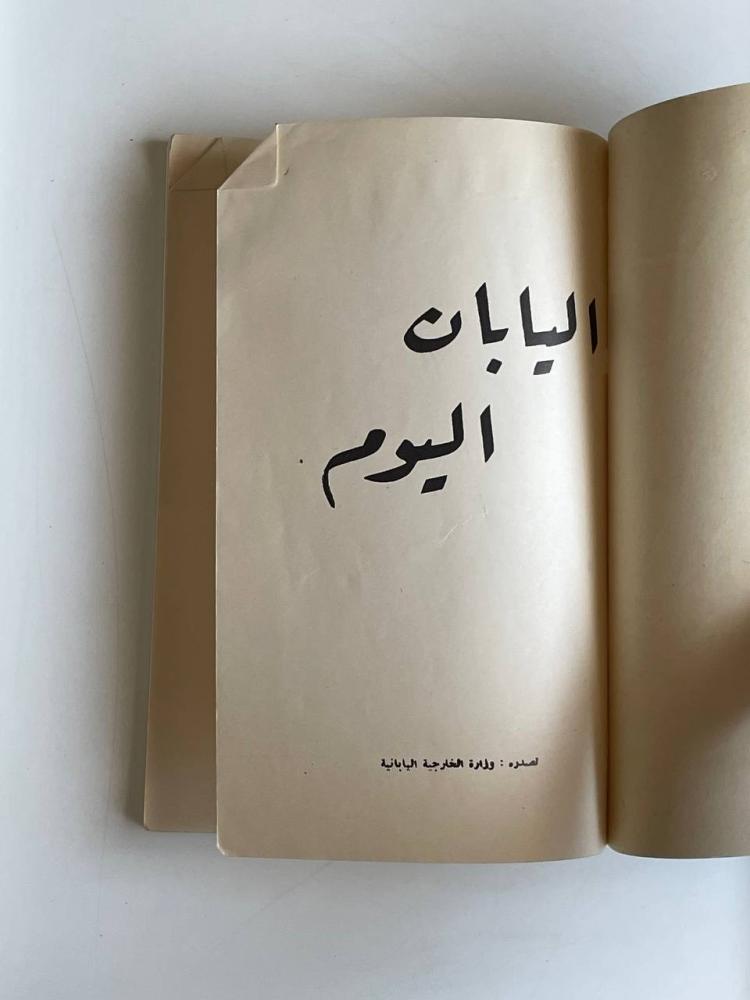 اليابان
اليوم
تصدره : وزارة الخارجية اليابانية